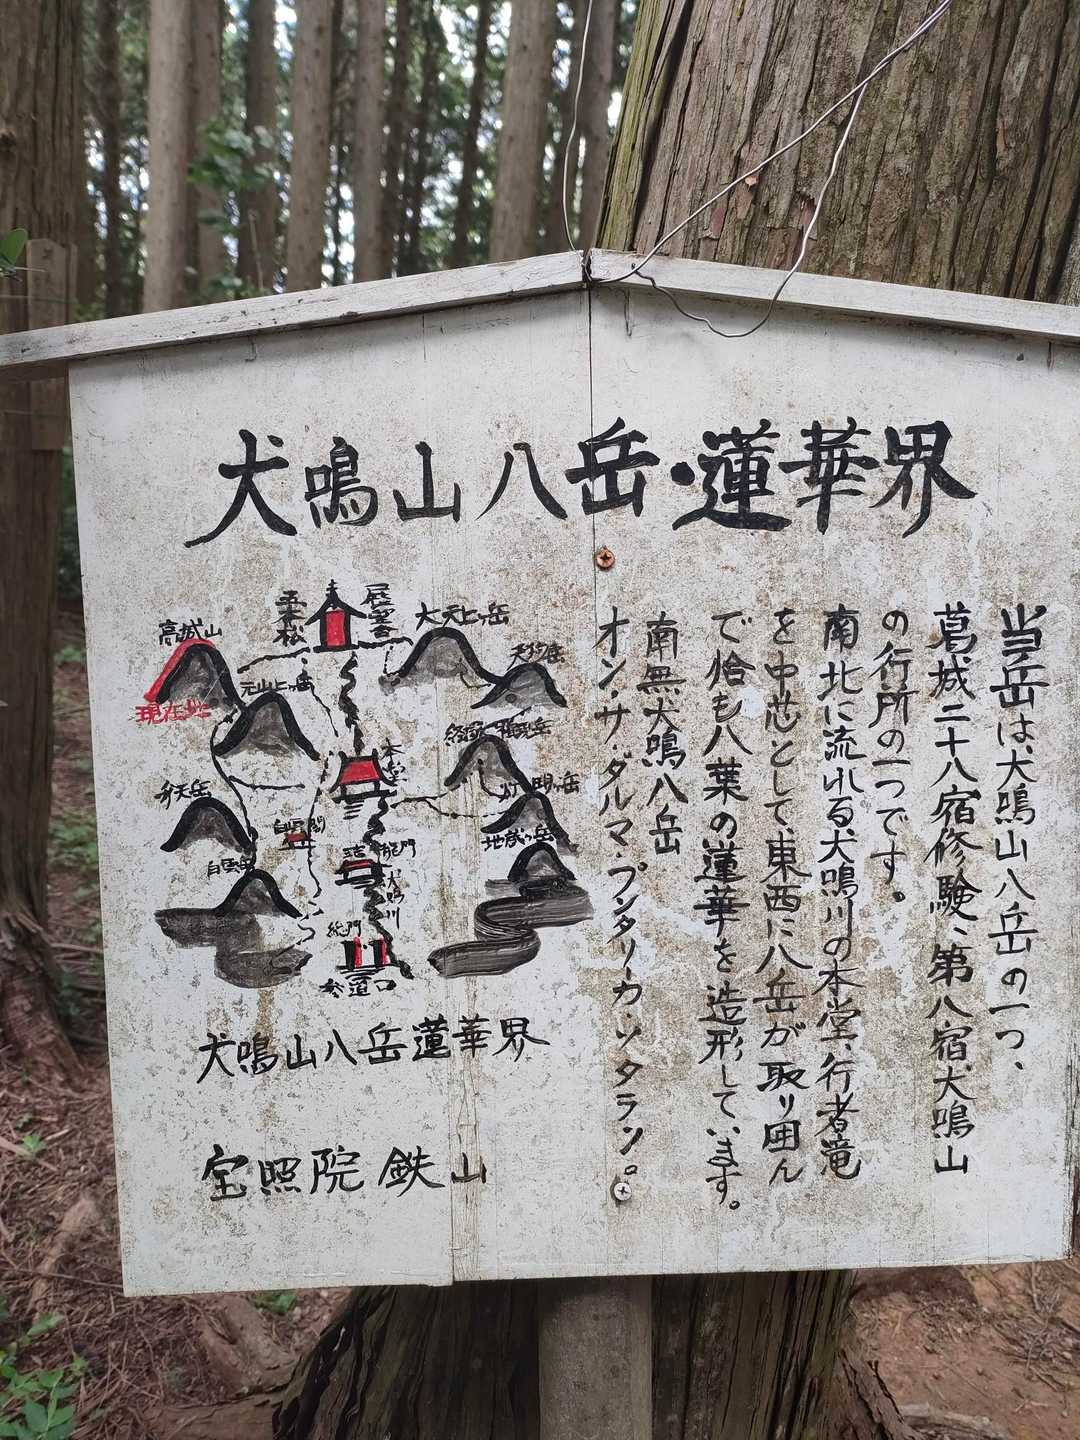 犬鳴山八岳・蓮華界
当岳は、犬鳴山八岳の一つ、
葛城二十八宿修験、第八宿、犬鳴山
の行所の一つです。
南北に流れる犬鳴川の本堂、行者滝
を中芯として、東西に八岳が取り囲ん
で恰も八葉の蓮華を造形しています。
南無犬鳴八岳
オン・サ・ダルマ・プンダリーカ・ソタラン。
五本松
大天上ヶ岳
高城山
現在地
元山上ヶ岳
天狗岳
本堂
灯明ヶ岳
弁天岳
地蔵ヶ岳
白雲岳
龍門
犬鳴川
総門
参道口
犬鳴山八岳蓮華界
宝照院 鉄山